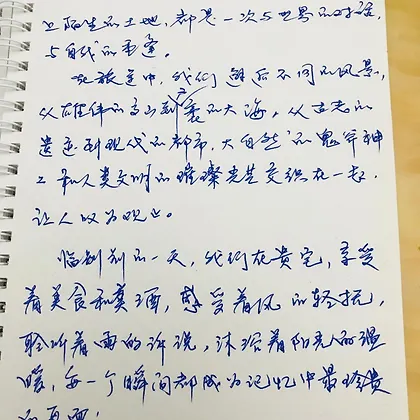 上陌生的土地，都是一次与世界的对话，
与自我的重逢。
在旅途中，我们邂逅不同的风景，
从雄伟的高山到广袤的大海，从古老的
遗迹到现代的都市，大自然的鬼斧神
工和人类文明的璀璨光芒交织在一起，
让人叹为观止。
临别前的一天，我们在贵宅，享受
着美食和美酒，感受着风的轻抚，
聆听着雨的诉说，沐浴着阳光的温
暖，每一个瞬间都成为记忆中最珍贵